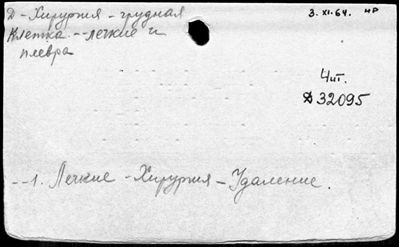 Д - Хирургия - грудная 3. XI. 64. НР
клетка - легкие и
плевра
Чит.
Д 32095
--1. Легкие - Хирургия - Удаление.